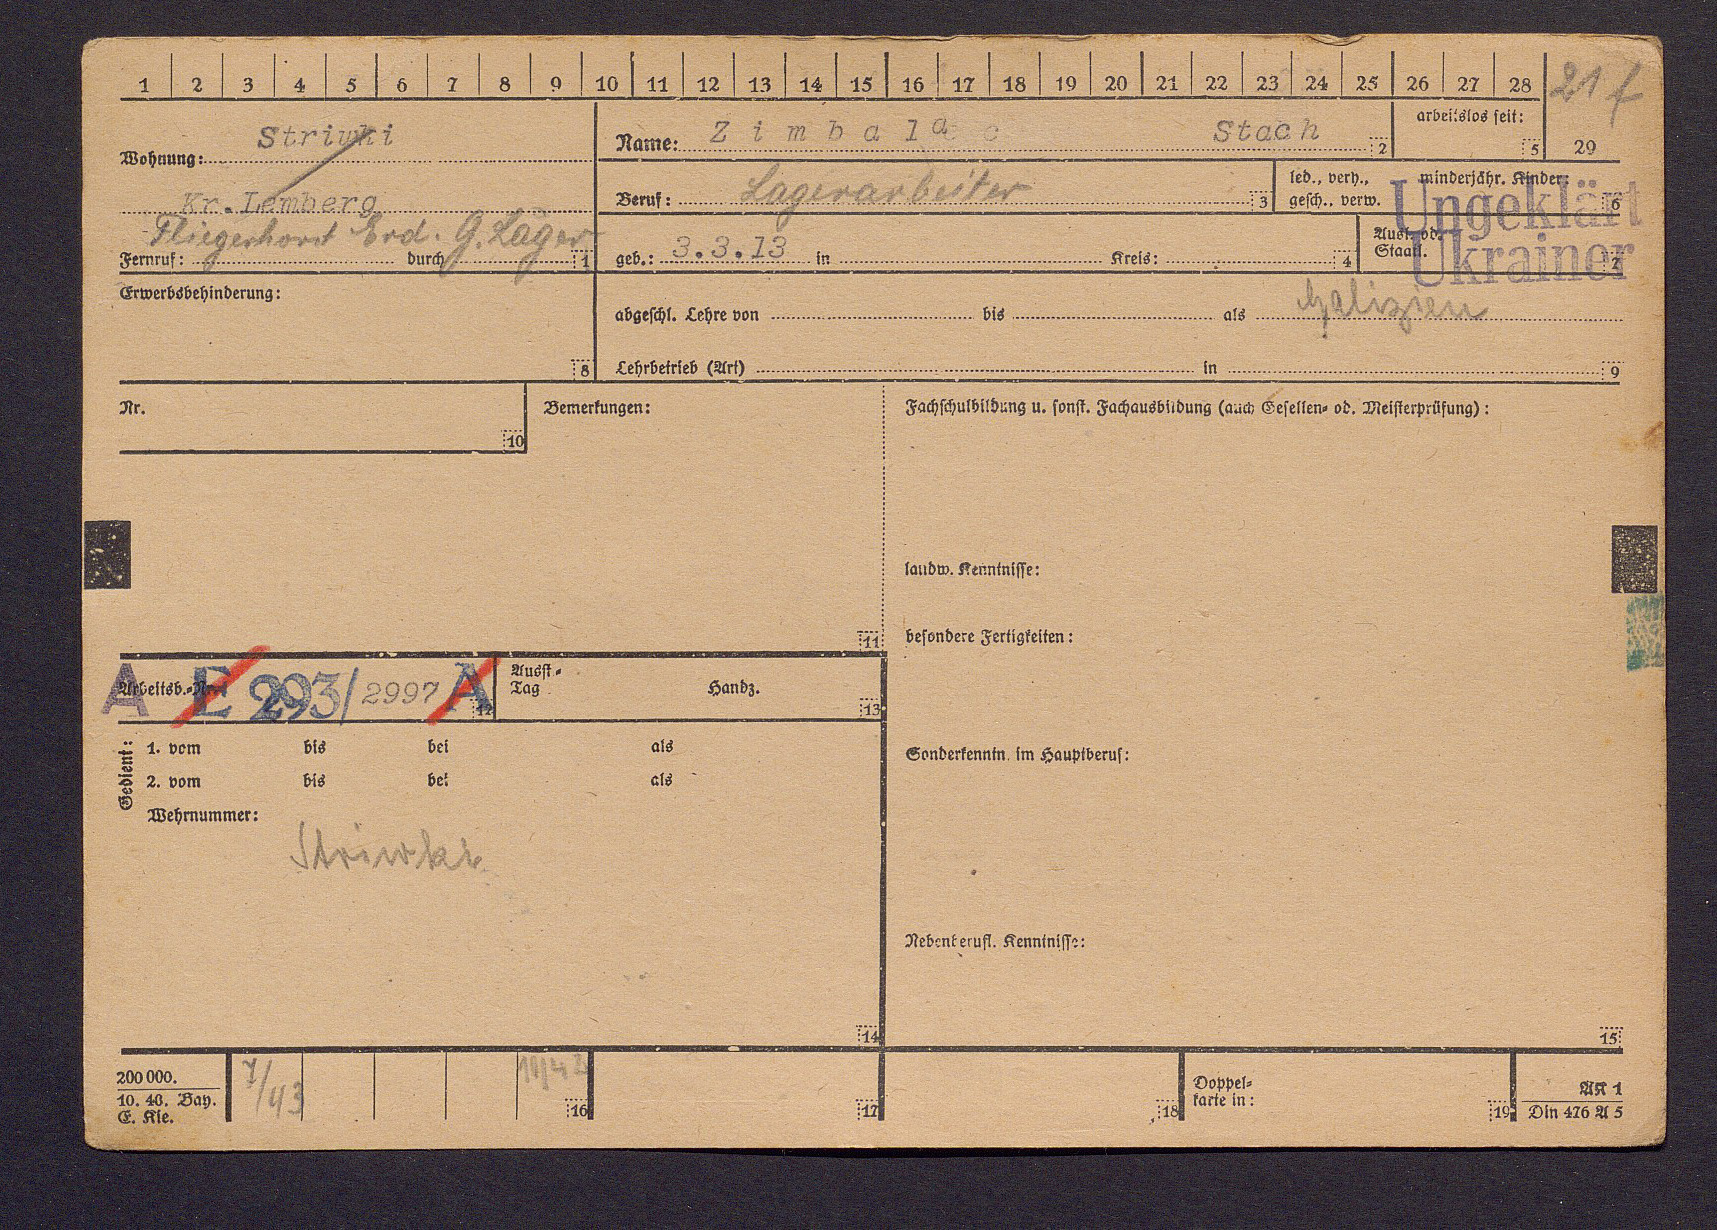 1 2 3 4 5 6 7 8 9 10 11 12 13 14 15 16 17 18 19 20 21 22 23 24 25 26 27 28 21 f
Wohnung: Striwki
Kr. Lemberg
Fliegerhorst Erd. G. Lager
Fernruf: durch 1
Name: Zimbala Stach 2
arbeitslos seit: 5
29
Beruf: Lagerarbeiter 3
led., verh., minderjähr. Kinder:
gesch., verw. 6
Ungeklärt
Ukrainer
geb.: 3.3.13 in Kreis: 4
Ausl. od.
Staatl. 7
Erwerbsbehinderung:
8
abgeschl. Lehre von bis als Galizien
Lehrbetrieb (Art) in 9
Nr.
10
Bemerkungen:
11
Fachschulbildung u. sonst. Fachausbildung (auch Gesellen- od. Meisterprüfung):
landw. Kenntnisse:
besondere Fertigkeiten:
A Arbeitsb.-Nr. E 293/2997 A 12
Ausst.-
Tag Handz. 13
Gedient:
1. vom bis bei als
2. vom bis bei als
Wehrnummer:
Striwki
14
Sonderkenntn. im Hauptberuf:
Nebenberufl. Kenntnisse:
15
200 000.
10. 40. Bay.
E. Kie.
7/43
16
17
18
Doppel-
karte in: 19
AK 1
Din 476 A 5